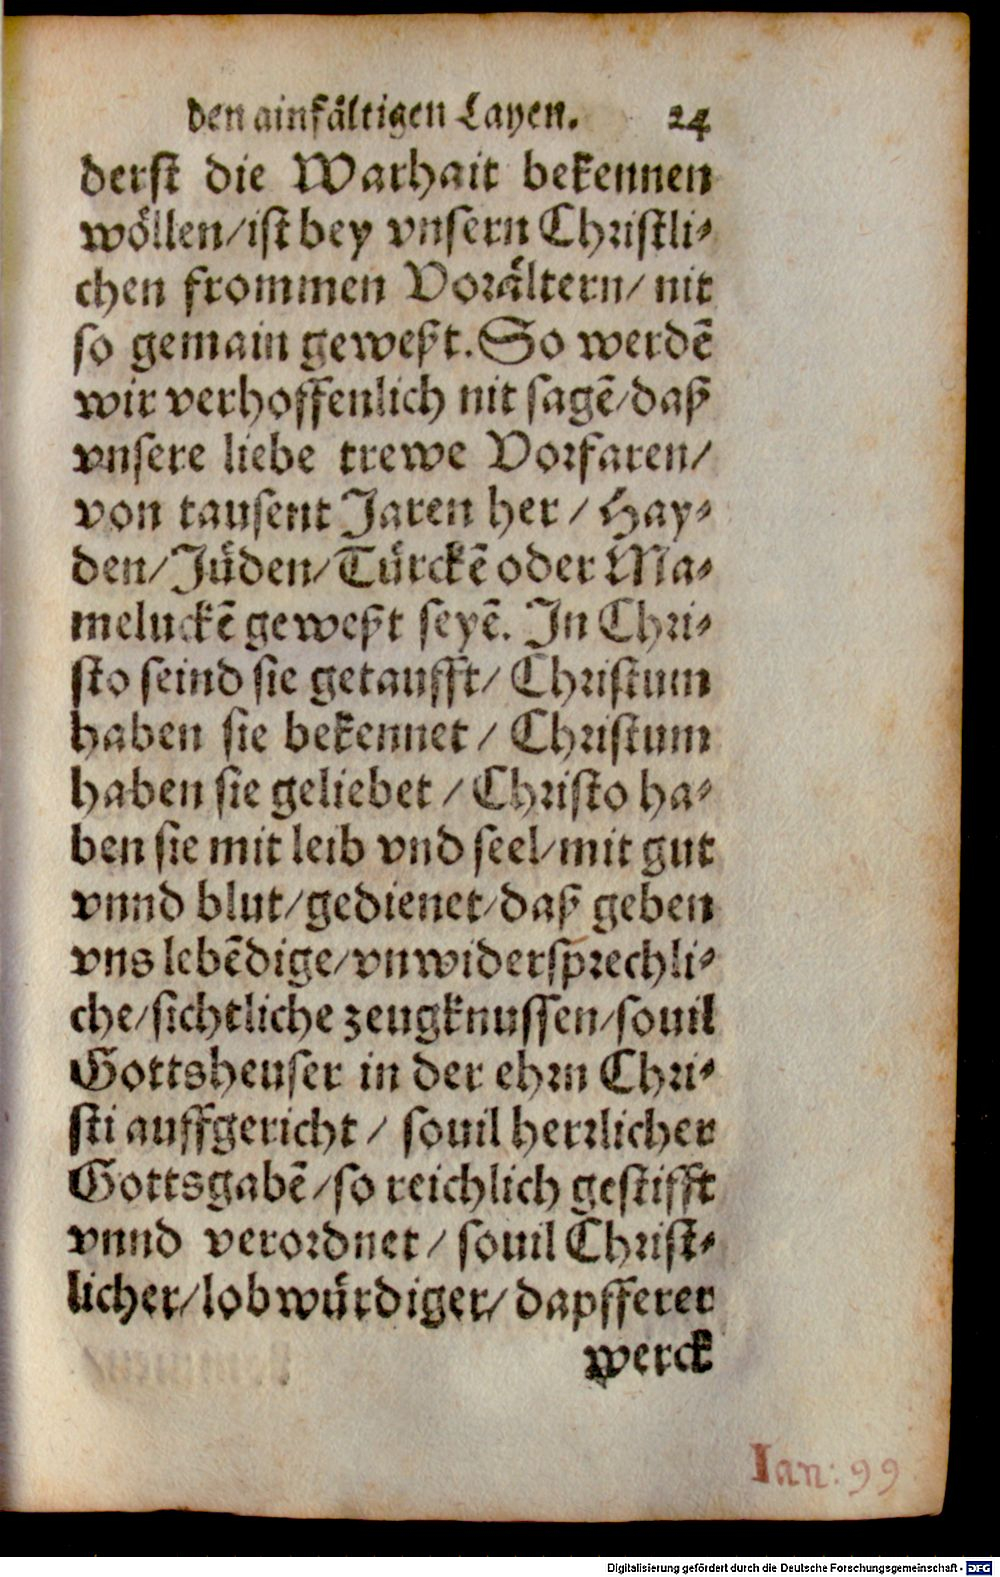 den ainfältigen Layen. 24
derst die Warhait bekennen
wöllen/ist bey vnsern Christli-
chen frommen Vorältern/ nit
so gemain geweßt. So werdẽ
wir verhoffenlich nit sagẽ/daß
vnsere liebe trewe Vorfaren/
von tausent Jaren her / Hay-
den/Jüden/Türckẽ oder Ma-
meluckẽ geweßt seyẽ. In Chri-
sto seind sie getaufft/ Christum
haben sie bekennet / Christum
haben sie geliebet / Christo ha-
ben sie mit leib vnd seel/mit gut
vnnd blut/gedienet/daß geben
vns lebẽdige/vnwidersprechli-
che/sichtliche zeugknussen/souil
Gottsheuser in der ehrn Chri-
sti auffgericht / souil herrlicher
Gottsgabẽ/so reichlich gestifft
vnnd verordnet / souil Christ-
licher/lobwürdiger/dapfferer
werck
Ian: 99
Digitalisierung gefördert durch die Deutsche Forschungsgemeinschaft - DFG